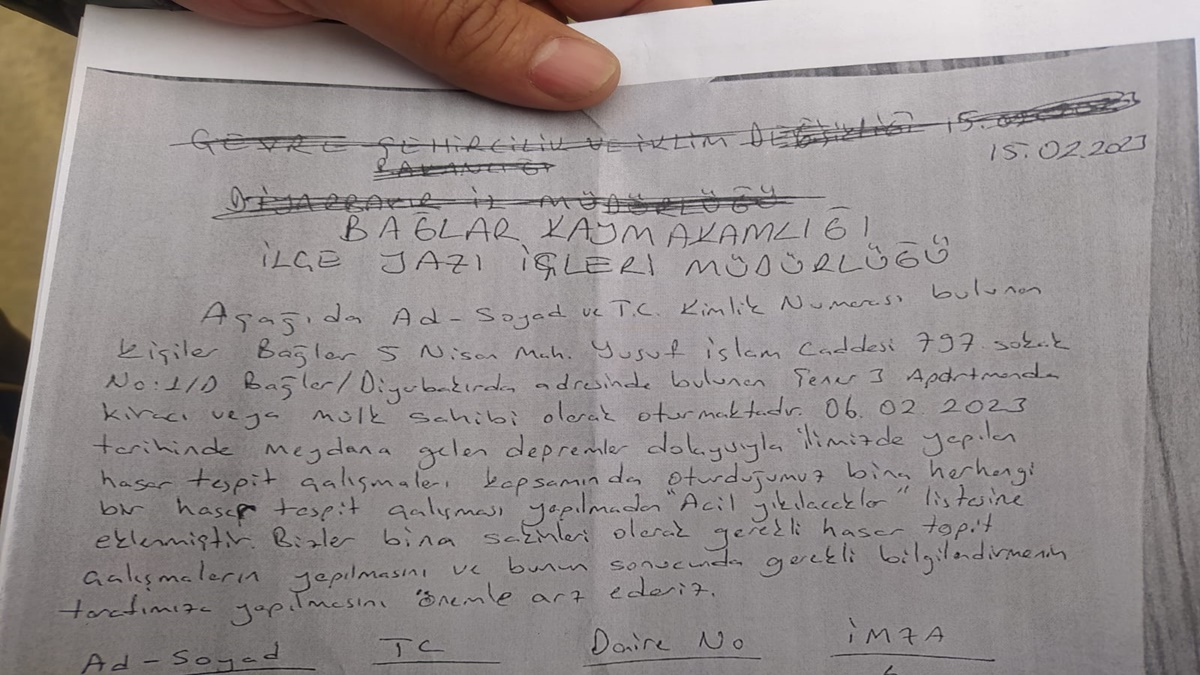 ÇEVRE ŞEHİRCİLİK VE İKLİM DEĞİŞİKLİĞİ 15.02.2023
BAKANLIĞI
15.02.2023
DİYARBAKIR İL MÜDÜRLÜĞÜ
BAĞLAR KAYMAKAMLIĞI
İLÇE YAZI İŞLERİ MÜDÜRLÜĞÜ
Aşağıda Ad-Soyad ve T.C. Kimlik Numarası bulunan
kişiler Bağlar 5 Nisan Mah. Yusuf islam Caddesi 797. sokak
No:1/D Bağlar/Diyarbakırda adresinde bulunan Şener 3 Apartmanda
kiracı veya mülk sahibi olarak oturmaktadır. 06.02.2023
tarihinde meydana gelen depremler dolayısıyla ilimizde yapılan
hasar tespit çalışmaları kapsamında oturduğumuz bina herhangi
bir hasar tespit çalışması yapılmadan "Acil yıkılacaklar" listesine
eklenmiştir. Bizler bina sakinleri olarak gerekli hasar tespit
çalışmaların yapılmasını ve bunun sonucunda gerekli bilgilendirmenin
tarafımıza yapılmasını önemle arz ederiz.
Ad-Soyad TC Daire No İMZA